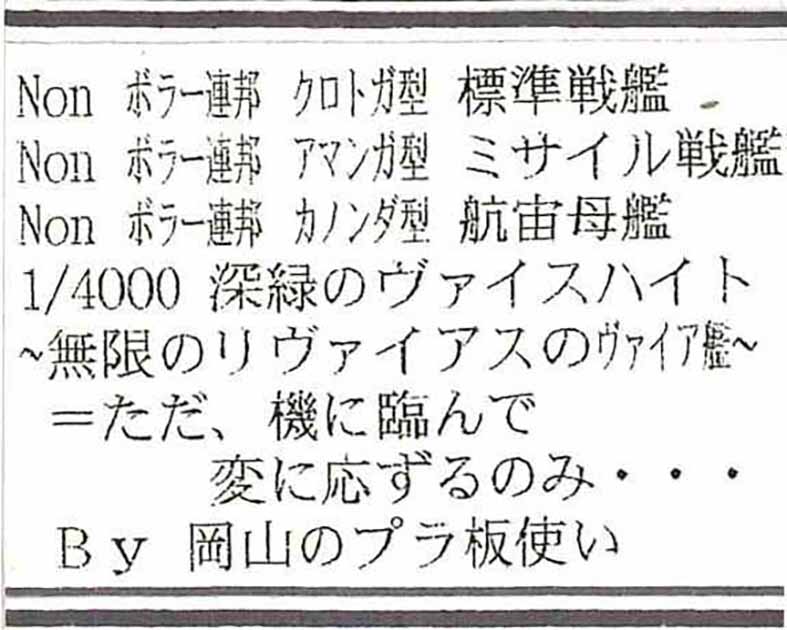 Non ボラー連邦 クロトガ型 標準戦艦
Non ボラー連邦 アマンガ型 ミサイル戦艦
Non ボラー連邦 カノンダ型 航宙母艦
1/4000 深緑のヴァイスハイト
~無限のリヴァイアスのヴァイア艦~
=ただ、機に臨んで
変に応ずるのみ・・・
By 岡山のプラ板使い